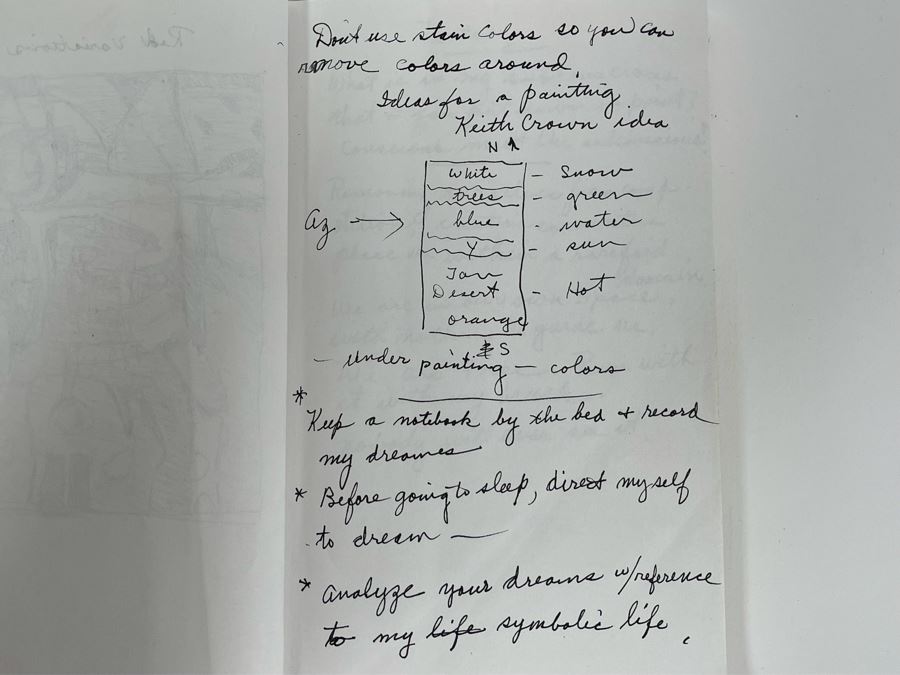 Don't use stain colors so you can
move colors around.
Ideas for a painting
Keith Crown idea
N
white - Snow
trees - green
blue - water
Y - sun
Az
Tan
Desert - Hot
orange
S
- Under painting - colors
* Keep a notebook by the bed + record
my dreames
* Before going to sleep, direct myself
to dream —
* Analyze your dreams w/reference
to my life symbolic life
Red Variations